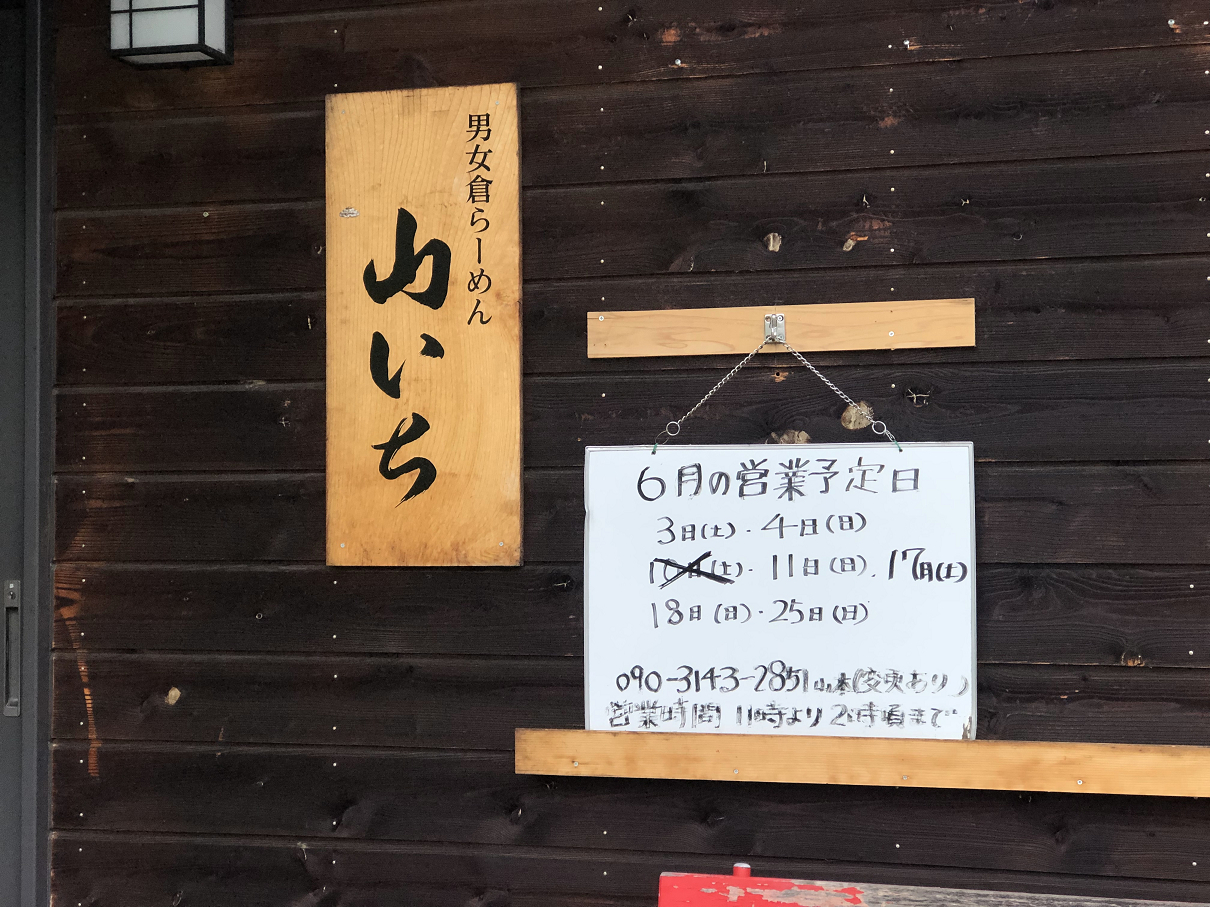 男女倉らーめん
山いち
6月の営業予定日
3日(土)・4日(日)
10日(土)・11日(日)・17月(土)
18日(日)・25日(日)
090-3143-2851山本(変更あり)
営業時間 11時より 2時頃まで